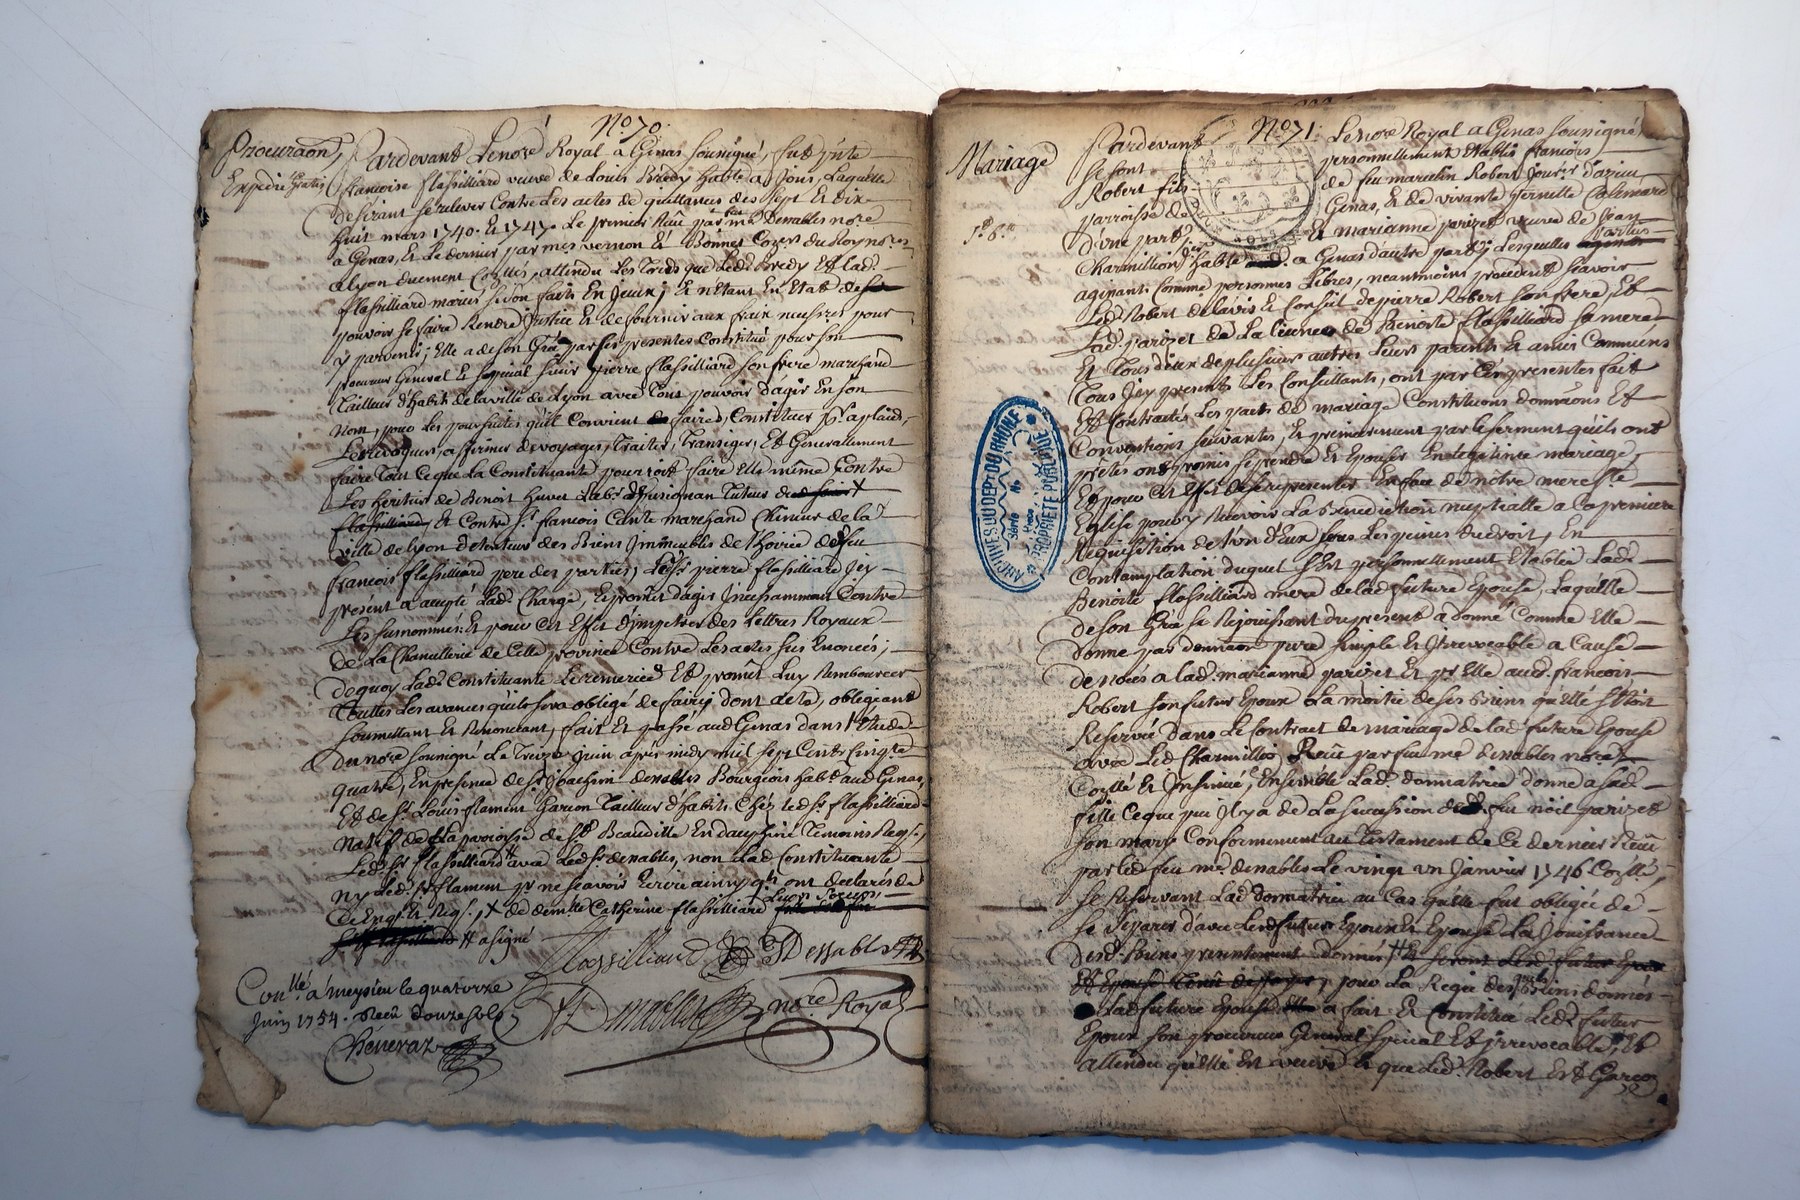 No. 70.
Procuraôn,
Expedié Gratis
Pardevant Le nore Royal a Genas soussigné, fut pnte
francoise flassilliard veuve de Louis Bredy habte a Jons, Laquelle
desirant se relever Contre Les actes de quittances des sept Et dix
huit mars 1740. Et 1747. Le premier Reçu par me Denables nore
a Genas, Et Le dernier par mes vernon Et Bonnet Coners du Roy nores
a Lyon duement Contlles, attendu Les que Led. Bredy Et Lad.
flassilliard mariés En Jceux, Et n'Etant En Etat de
pouvoir se faire Rendre Justice Et de fournir aux fraix necessres pour
y parvenir; Elle a de son Gré par ses presentes Constitué pour son
procureur General Et special sieur pierre flassilliard son frere marchand
Tailleur d'habits de la ville de Lyon avec Tout pouvoir d'agir En son
nom, pour Les poursuites qu'il Convient faire, Constituer
Les revoquer, affirmer de voyages, Traiter, Transiger, Et Generallement
faire Tout Ce que La Constituante pourroit faire Elle même Contre
Les heritiers de Benoit huvet Labr. d'pusignan Tuteur de
flassilliard, Et Contre sr. francois Cante marchand Chineur de la
ville de Lyon detenteur des Biens Jmmeubles de l'hoirie de feu
francois flassilliard pere des parties, Led. sr. pierre flassilliard Jcy
présent a accepté Lad. Charge, Et promet d'agir Jncessamment Contre
Les surnommés Et pour Cet Effet d'jmpetrer des Lettres Royaux
de La Chancellerie de Cette province Contre Les actes sus Enoncés;
de quoy Lad. Constituante Le remercie Et promet Luy Rembourcer
Touttes Les avances qu'il sera obligé de faire, dont acte, obligeant
soumettant Et Renoncant, fait Et passé aud. Genas dans l'Etude
du nore soussigné Le Treize Juin après midy mil sept Cent Cinqte
quatre, En presence de sr. Joachim denables Bourgeois habt. aud. Genas,
Et de sr. Louis flament Garcon Tailleur d'habits Chéz led. sr. flassilliard
natif de La paroisse de St. Beaudille En dauphiné Temoins Reqs,
Led. sr. flassilliard a avec Led. sr. denables, non Lad. Constituante
ny Led. sr. flament pr. ne scavoir Ecrire ainsy qu'ils ont declarés de
Ce Enqs. Et Reqs. X de demlle Catherine flassilliard
a signé
flassilliard J Denables
Denables nore Royal
Conllé a meysieu le quatorze
juin 1754. Recu douze sols
Cheneraz
No. 71.
Mariage
Pardevant Le nore Royal a Genas soussigné
se sont personnellement Etablis francois
Robert fils de feu marcelin Robert Jourr. d'azieu
parroisse de Genas, Et de vivante pernette Colineard
d'une part, Et marianne parizet veuve de Jean
Charmillion habte a Genas d'autre part, Lesquelles parties
agissants Comme personnes Libres, neantmoins procedent scavoir
Led. Robert de l'avis Et Conseil de pierre Robert son frere, Et
Lad. parizet de La Licence de Benoite flassilliard sa mere
Et Tous deux de plusieurs autres Leurs parents Et amis Communs
Tous Jcy presents Les Conseillants, ont par Ces presentes fait
Et Contractés Les pacts de mariage Constitutions donnaôns Et
Conventions suivantes, Et premierement par le serment qu'ils ont
prétes ont promis se prendre Et Epouser En legitime mariage,
Et pour Cet Effet de se representer En face de nôtre mere Ste.
Eglise pour y recevoir La Benediction nuptialle a La premiere
Requisition de l'un d'Eux sous Les peines du droit, En
Contamplation duquel s'Est personnellement Etablie Lad.
Benoite flassilliard mere de lad. future Epouse, Laquelle
de son Gré se Rejouissant du present a donné Comme Elle
donne par donnaôn pure simple Et Jrrevocable a Cause
de nôces a lad. marianne parizet Et pr. Elle aud. francois
Robert son futur Epoux La moitié de ses Biens qu'Elle s'Etoit
Reservée dans Le Contract de mariage de lad. future Epouse
avec Led. Charmillion Reçu par feu me Denables nore
Conllé Et Jnsinué, Ensemble Lad. donnatrice donne a sad.
fille Ce que qui Jl y a de La succession dud. feu noël parizet
son mary Conformement au Testament de Ce dernier Reçu
par led. feu me. denables Le vingt un Janvier 1746 Conllé,
se reservant Lad. donnatrice au Cas qu'Elle fut obligée de
se separer d'avec Led. futur Epoux Et Epouse La Jouissance
desd. Biens presentement donnés,
pour La Regie des Biens donnés
Lad. future Epouse a fait Et Constitué Led. futur
Epoux son procureur General special Et jrrevocable, Et
attendu qu'Elle Est veuve Et que Led. Robert Est Garcon
ARCHIVES DU DEPT DU RHONE
Série
No
PROPRIETE PUBLIQUE